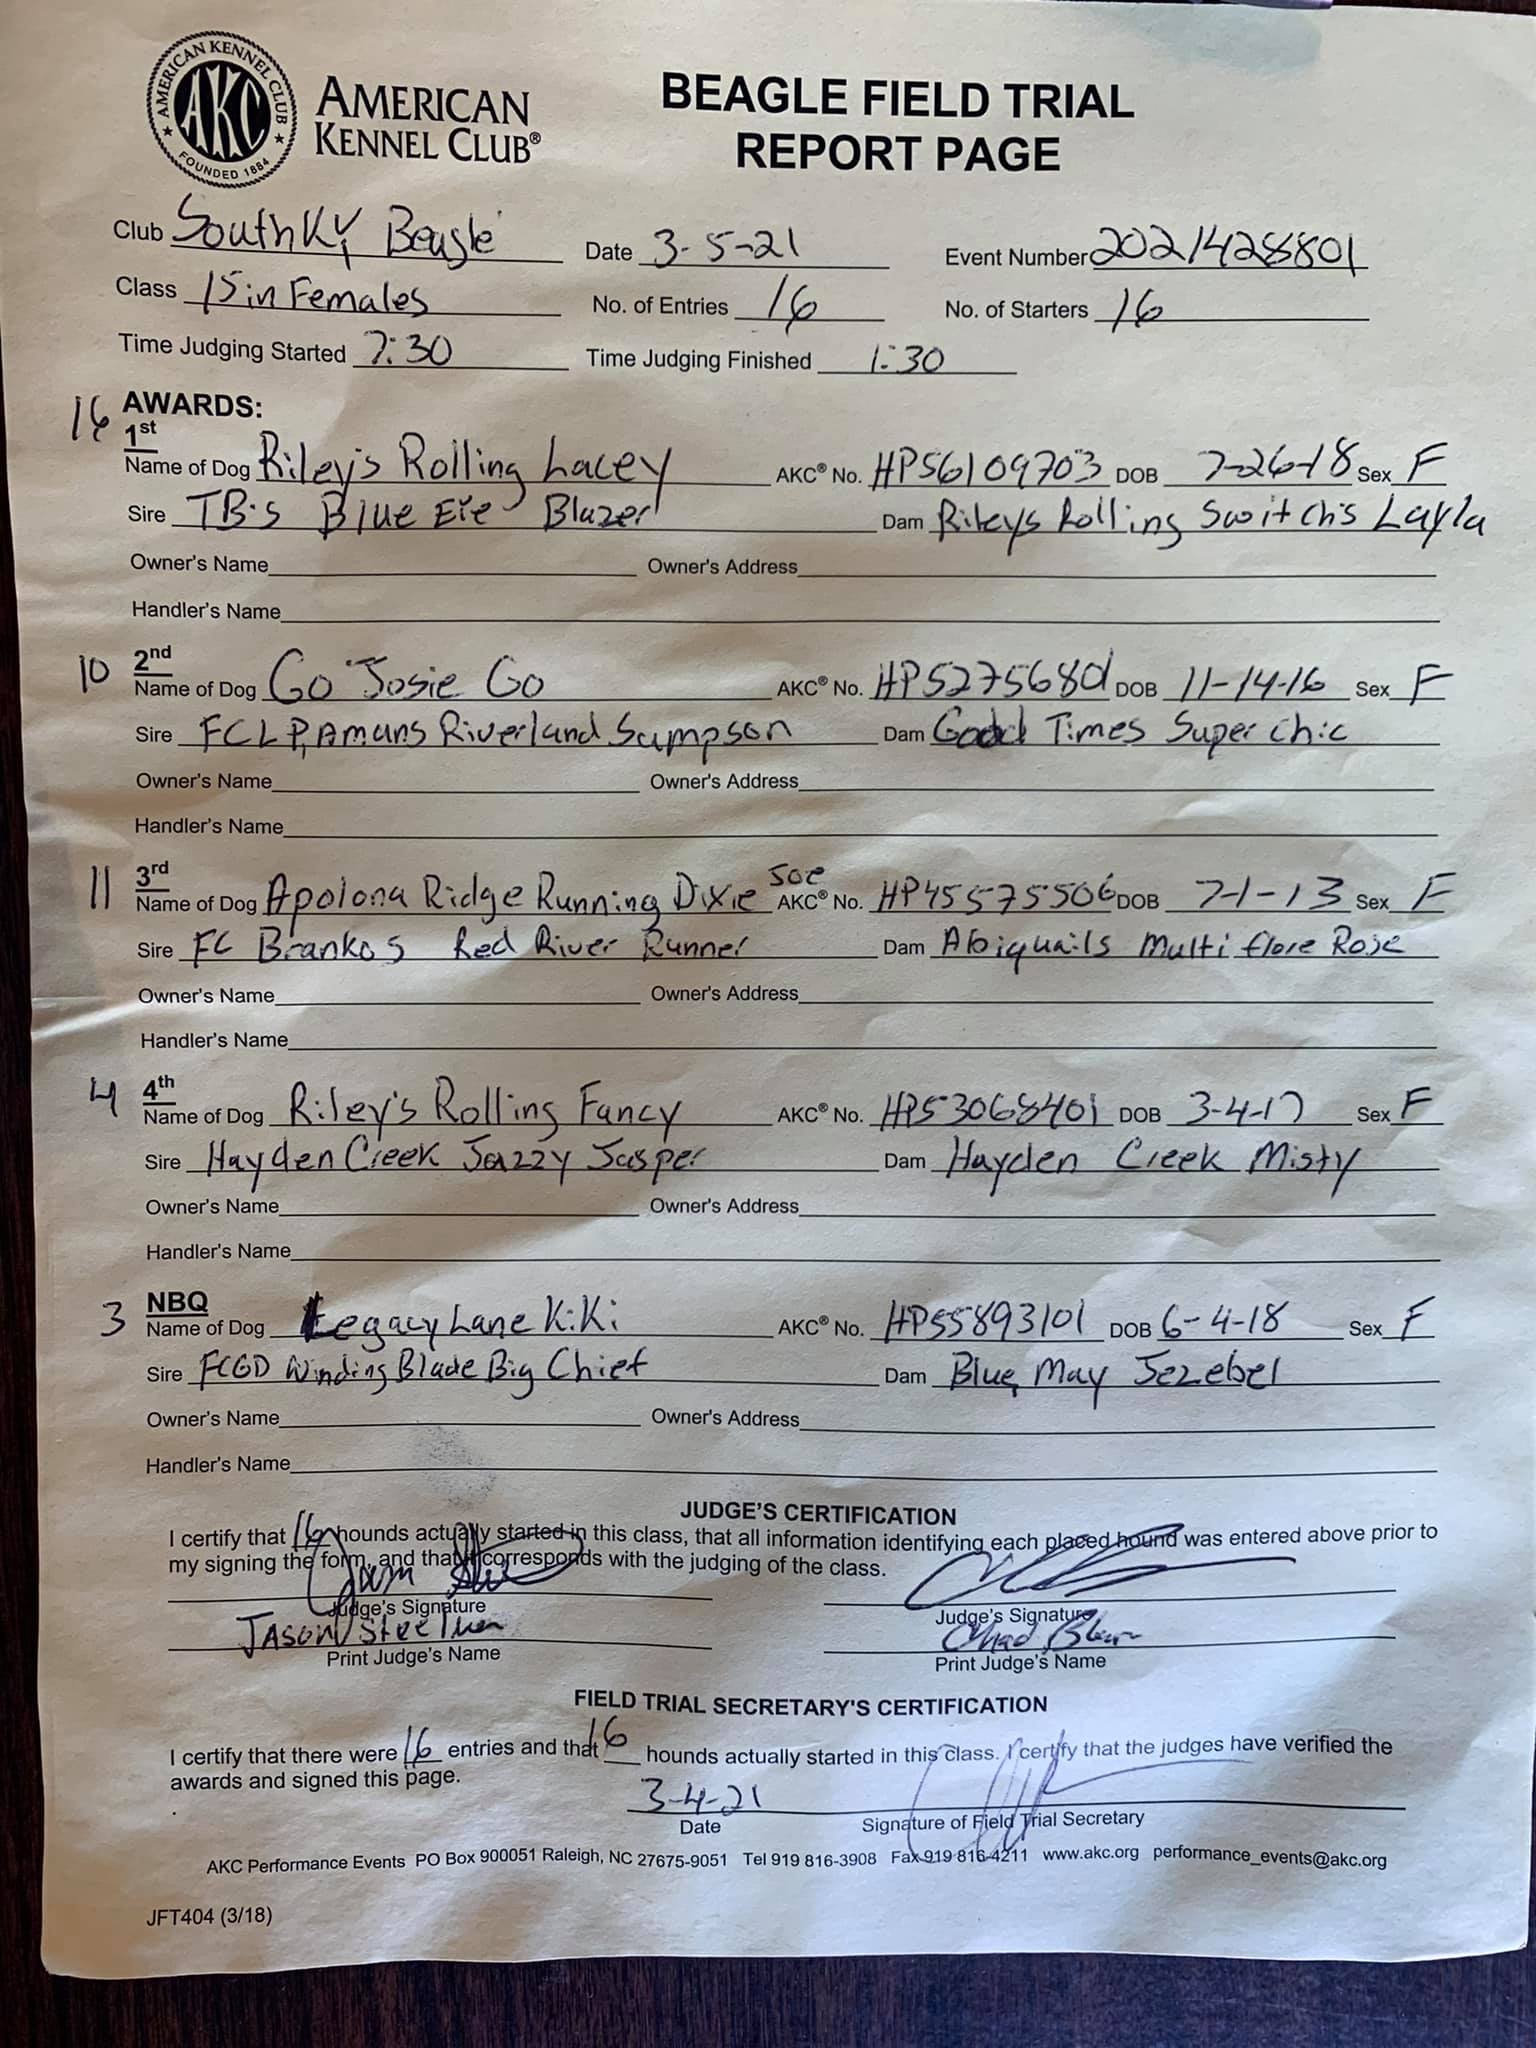 AMERICAN KENNEL CLUB
AKC
FOUNDED 1884
AMERICAN
KENNEL CLUB®
BEAGLE FIELD TRIAL
REPORT PAGE
Club South Ky Beagle Date 3-5-21 Event Number 2021428801
Class 15 in Females No. of Entries 16 No. of Starters 16
Time Judging Started 7:30 Time Judging Finished 1:30
16 AWARDS:
1st
Name of Dog Riley's Rolling Lacey AKC® No. HP56109703 DOB 7-26-18 Sex F
Sire TB's Blue Eie Blazer Dam Rileys Rolling Switch's Layla
Owner's Name Owner's Address
Handler's Name
10 2nd
Name of Dog Go Josie Go AKC® No. HP52756801 DOB 11-14-16 Sex F
Sire FC LP, Amuns Riverland Sampson Dam Good Times Super Chic
Owner's Name Owner's Address
Handler's Name
11 3rd
Name of Dog Apolona Ridge Running Dixie Joe AKC® No. HP45575506 DOB 7-1-13 Sex F
Sire FC Brankos Red River Runner Dam Abiquails Multi flore Rose
Owner's Name Owner's Address
Handler's Name
4 4th
Name of Dog Riley's Rolling Fancy AKC® No. HP53068401 DOB 3-4-17 Sex F
Sire Hayden Creek Jazzy Jasper Dam Hayden Creek Misty
Owner's Name Owner's Address
Handler's Name
3 NBQ
Name of Dog Legacy Lane KiKi AKC® No. HP55893101 DOB 6-4-18 Sex F
Sire FCGD Winding Blade Big Chief Dam Blue May Jezebel
Owner's Name Owner's Address
Handler's Name
JUDGE'S CERTIFICATION
I certify that 16 hounds actually started in this class, that all information identifying each placed hound was entered above prior to
my signing the form, and that it corresponds with the judging of the class.
Judge's Signature Judge's Signature
Jason Chad
Print Judge's Name Print Judge's Name
FIELD TRIAL SECRETARY'S CERTIFICATION
I certify that there were 16 entries and that 16 hounds actually started in this class. I certify that the judges have verified the
awards and signed this page.
3-4-21
Date Signature of Field Trial Secretary
AKC Performance Events PO Box 900051 Raleigh, NC 27675-9051 Tel 919 816-3908 Fax 919 816-4211 www.akc.org performance_events@akc.org
JFT404 (3/18)